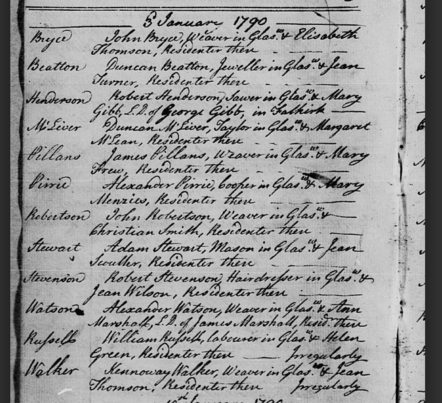 3 January 1790
Bryce John Bryce, Weaver in Glasw. & Elisabeth
Thomson, Residenter there
Beatton Duncan Beatton, Jeweller in Glasw. & Jean
Turner, Residenter there
Henderson Robert Henderson, Sawer in Glasw. & Mary
Gibb, L.D. of George Gibb, in Falkirk
McLiver Duncan McLiver, Taylor in Glasw. & Margaret
McLean, Residenter there
Pillans James Pillans, Weaver in Glasw. & Mary
Frew, Residenter there
Pirrie Alexander Pirrie, Cooper in Glasw. & Mary
Menzies, Residenter there
Robertson John Robertson, Weaver in Glasw. &
Christian Smith, Residenter there
Stewart Adam Stewart, Mason in Glasw. & Jean
Residenter there
Stevenson Robert Stevenson, Hairdresser in Glasw. &
Jean Wilson, Residenter there
Watson Alexander Watson, Weaver in Glasw. & Ann
Marshall, L.D. of James Marshall, Resid. there
Russell William Russell, Labourer in Glasw. & Helen
Green, Residenter there Irregularly
Walker Kennoway Walker, Weaver in Glasw. & Jean
Thomson, Residenter there Irregularly
January 1790